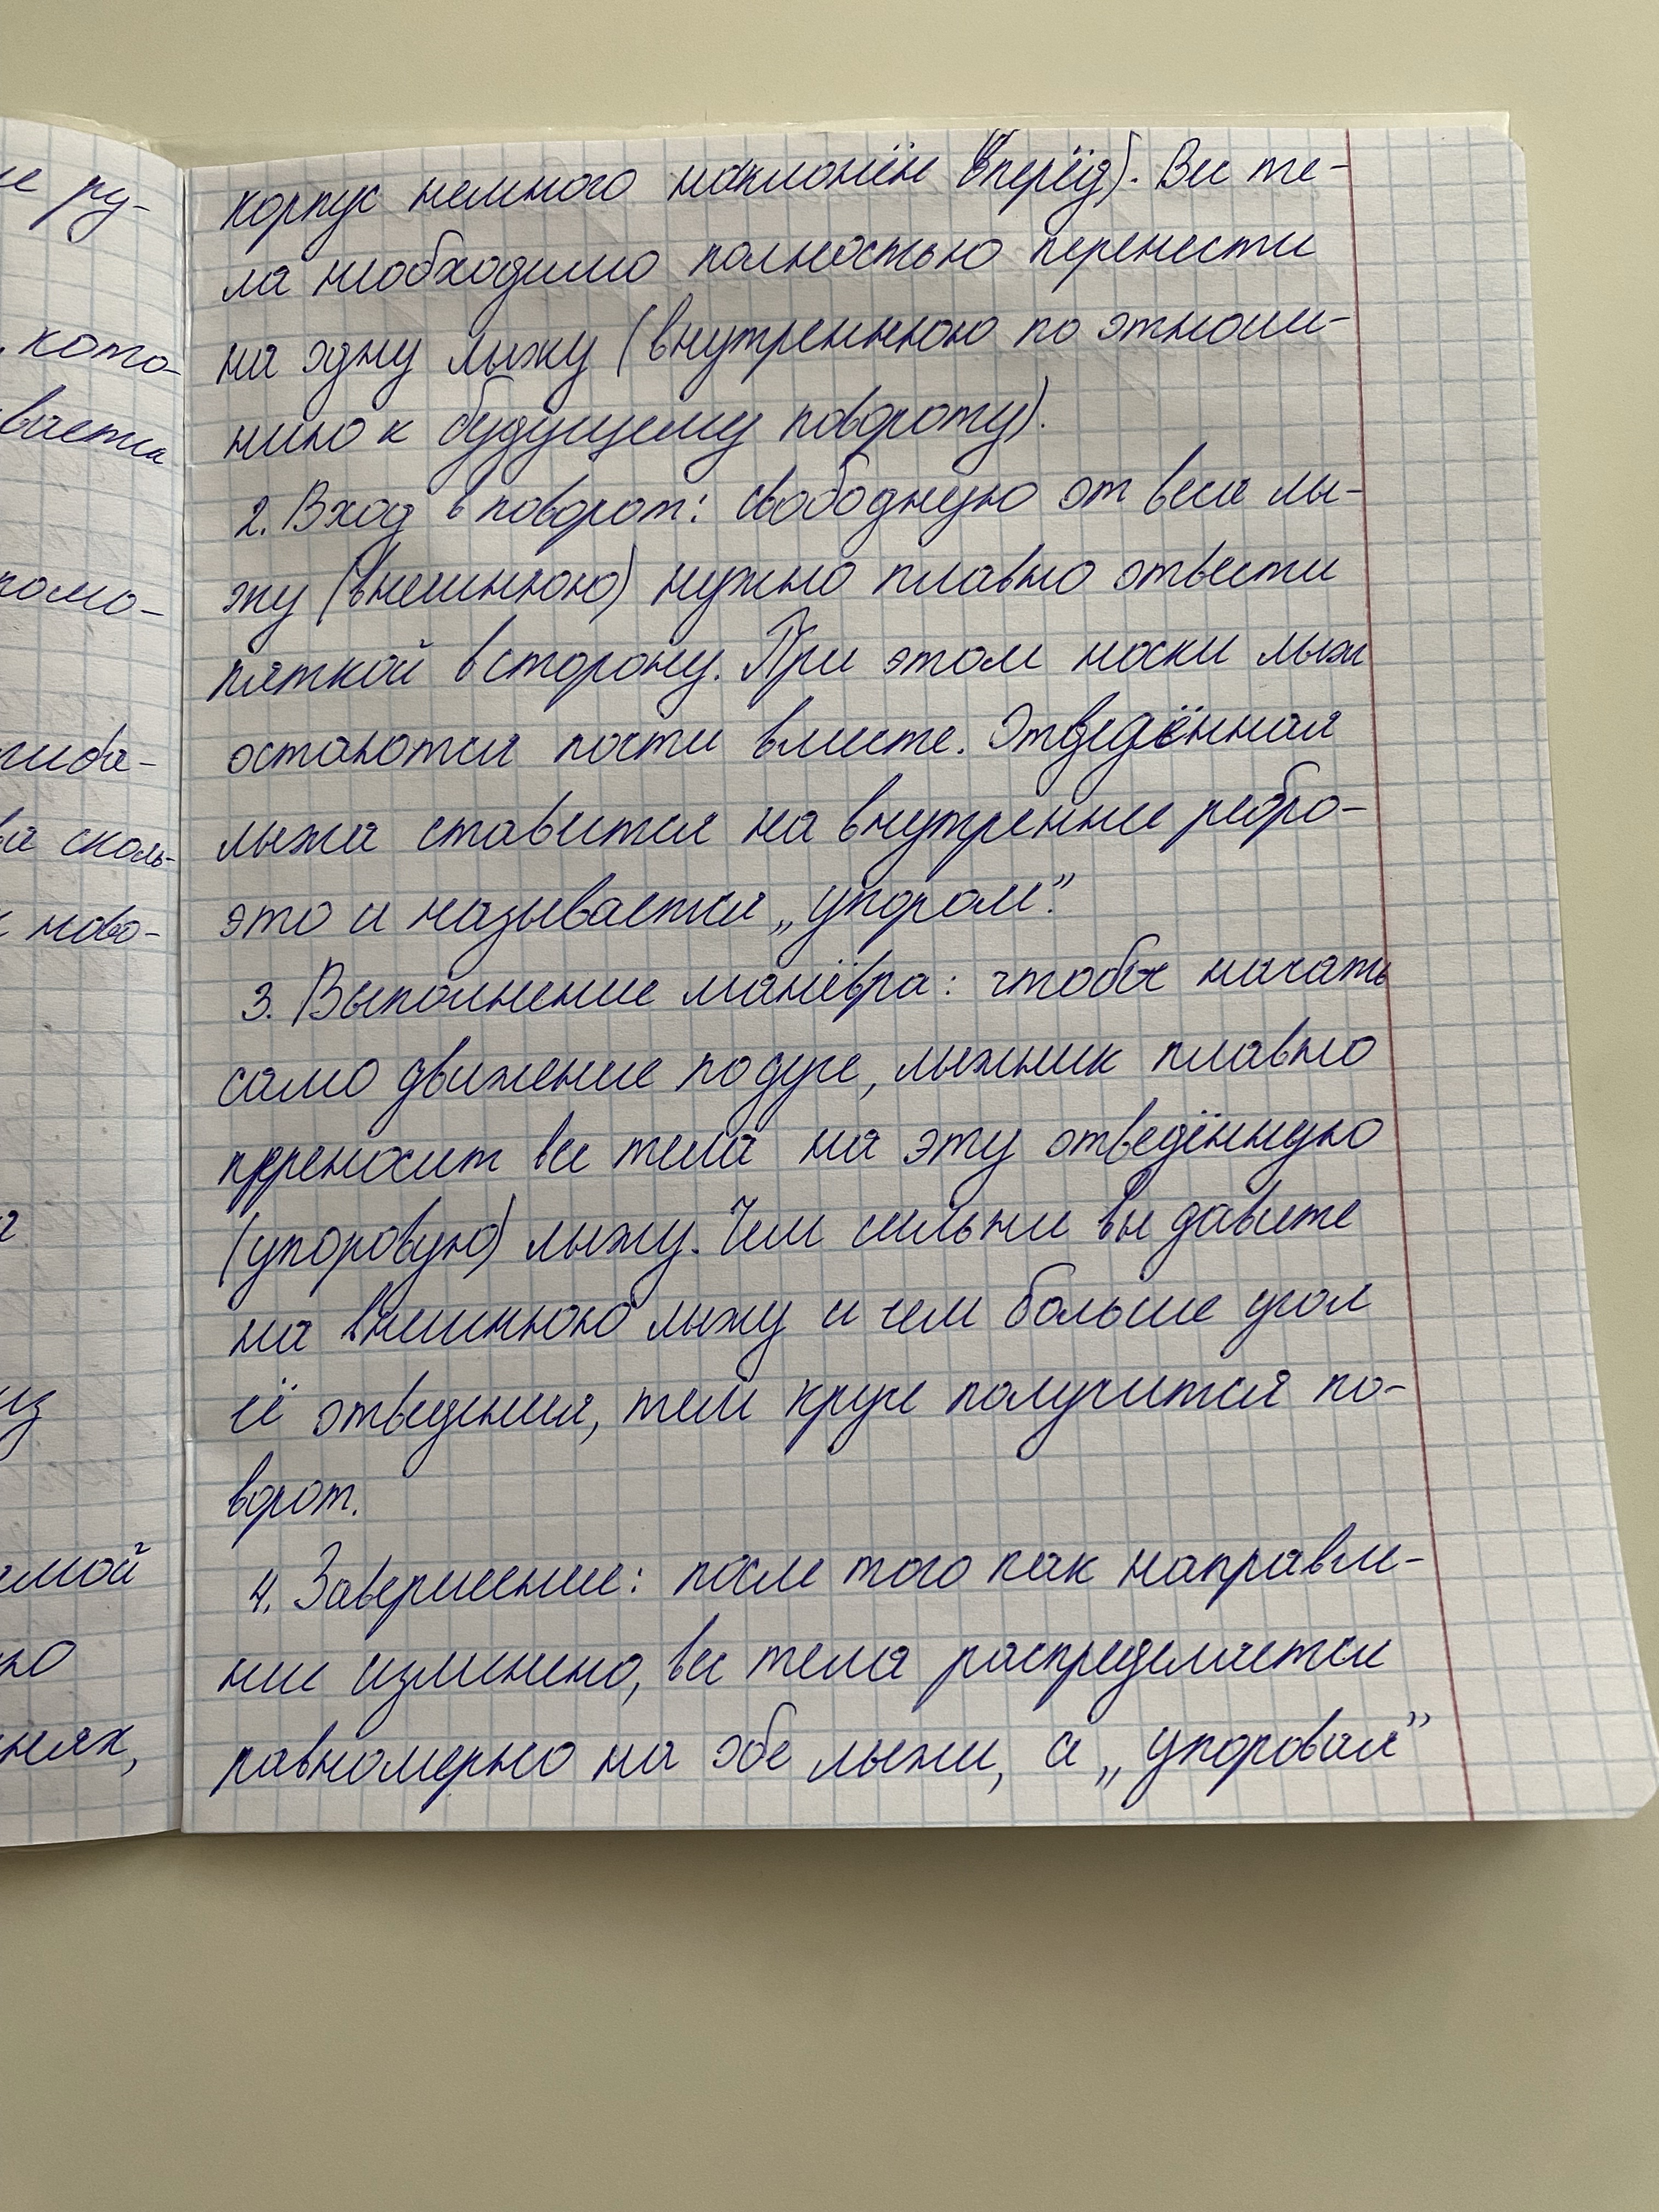 корпус немного наклонён вперёд). Вес те-
ла необходимо полностью перенести
на одну лыжу (внутреннюю по отноше-
нию к будущему повороту).
2. Вход в поворот: свободную от веса лы-
жу (внешнюю) нужно плавно отвести
пяткой в сторону. При этом носки лыж
остаются почти вместе. Отведённая
лыжа ставится на внутреннее ребро-
это и называется „упором”.
3. Выполнение манёвра: чтобы начать
само движение по дуге, лыжник плавно
переносит вес тела на эту отведённую
(упоровую) лыжу. Чем сильнее вы давите
на внешнюю лыжу и чем больше угол
её отведения, тем круче получится по-
ворот.
4. Завершение: после того как направле-
ние изменено, вес тела распределяется
равномерно на обе лыжи, а „упоровая”
ру-
кото-
вается
помо-
гиба-
сколь-
ново-
из
мой
но
нях,